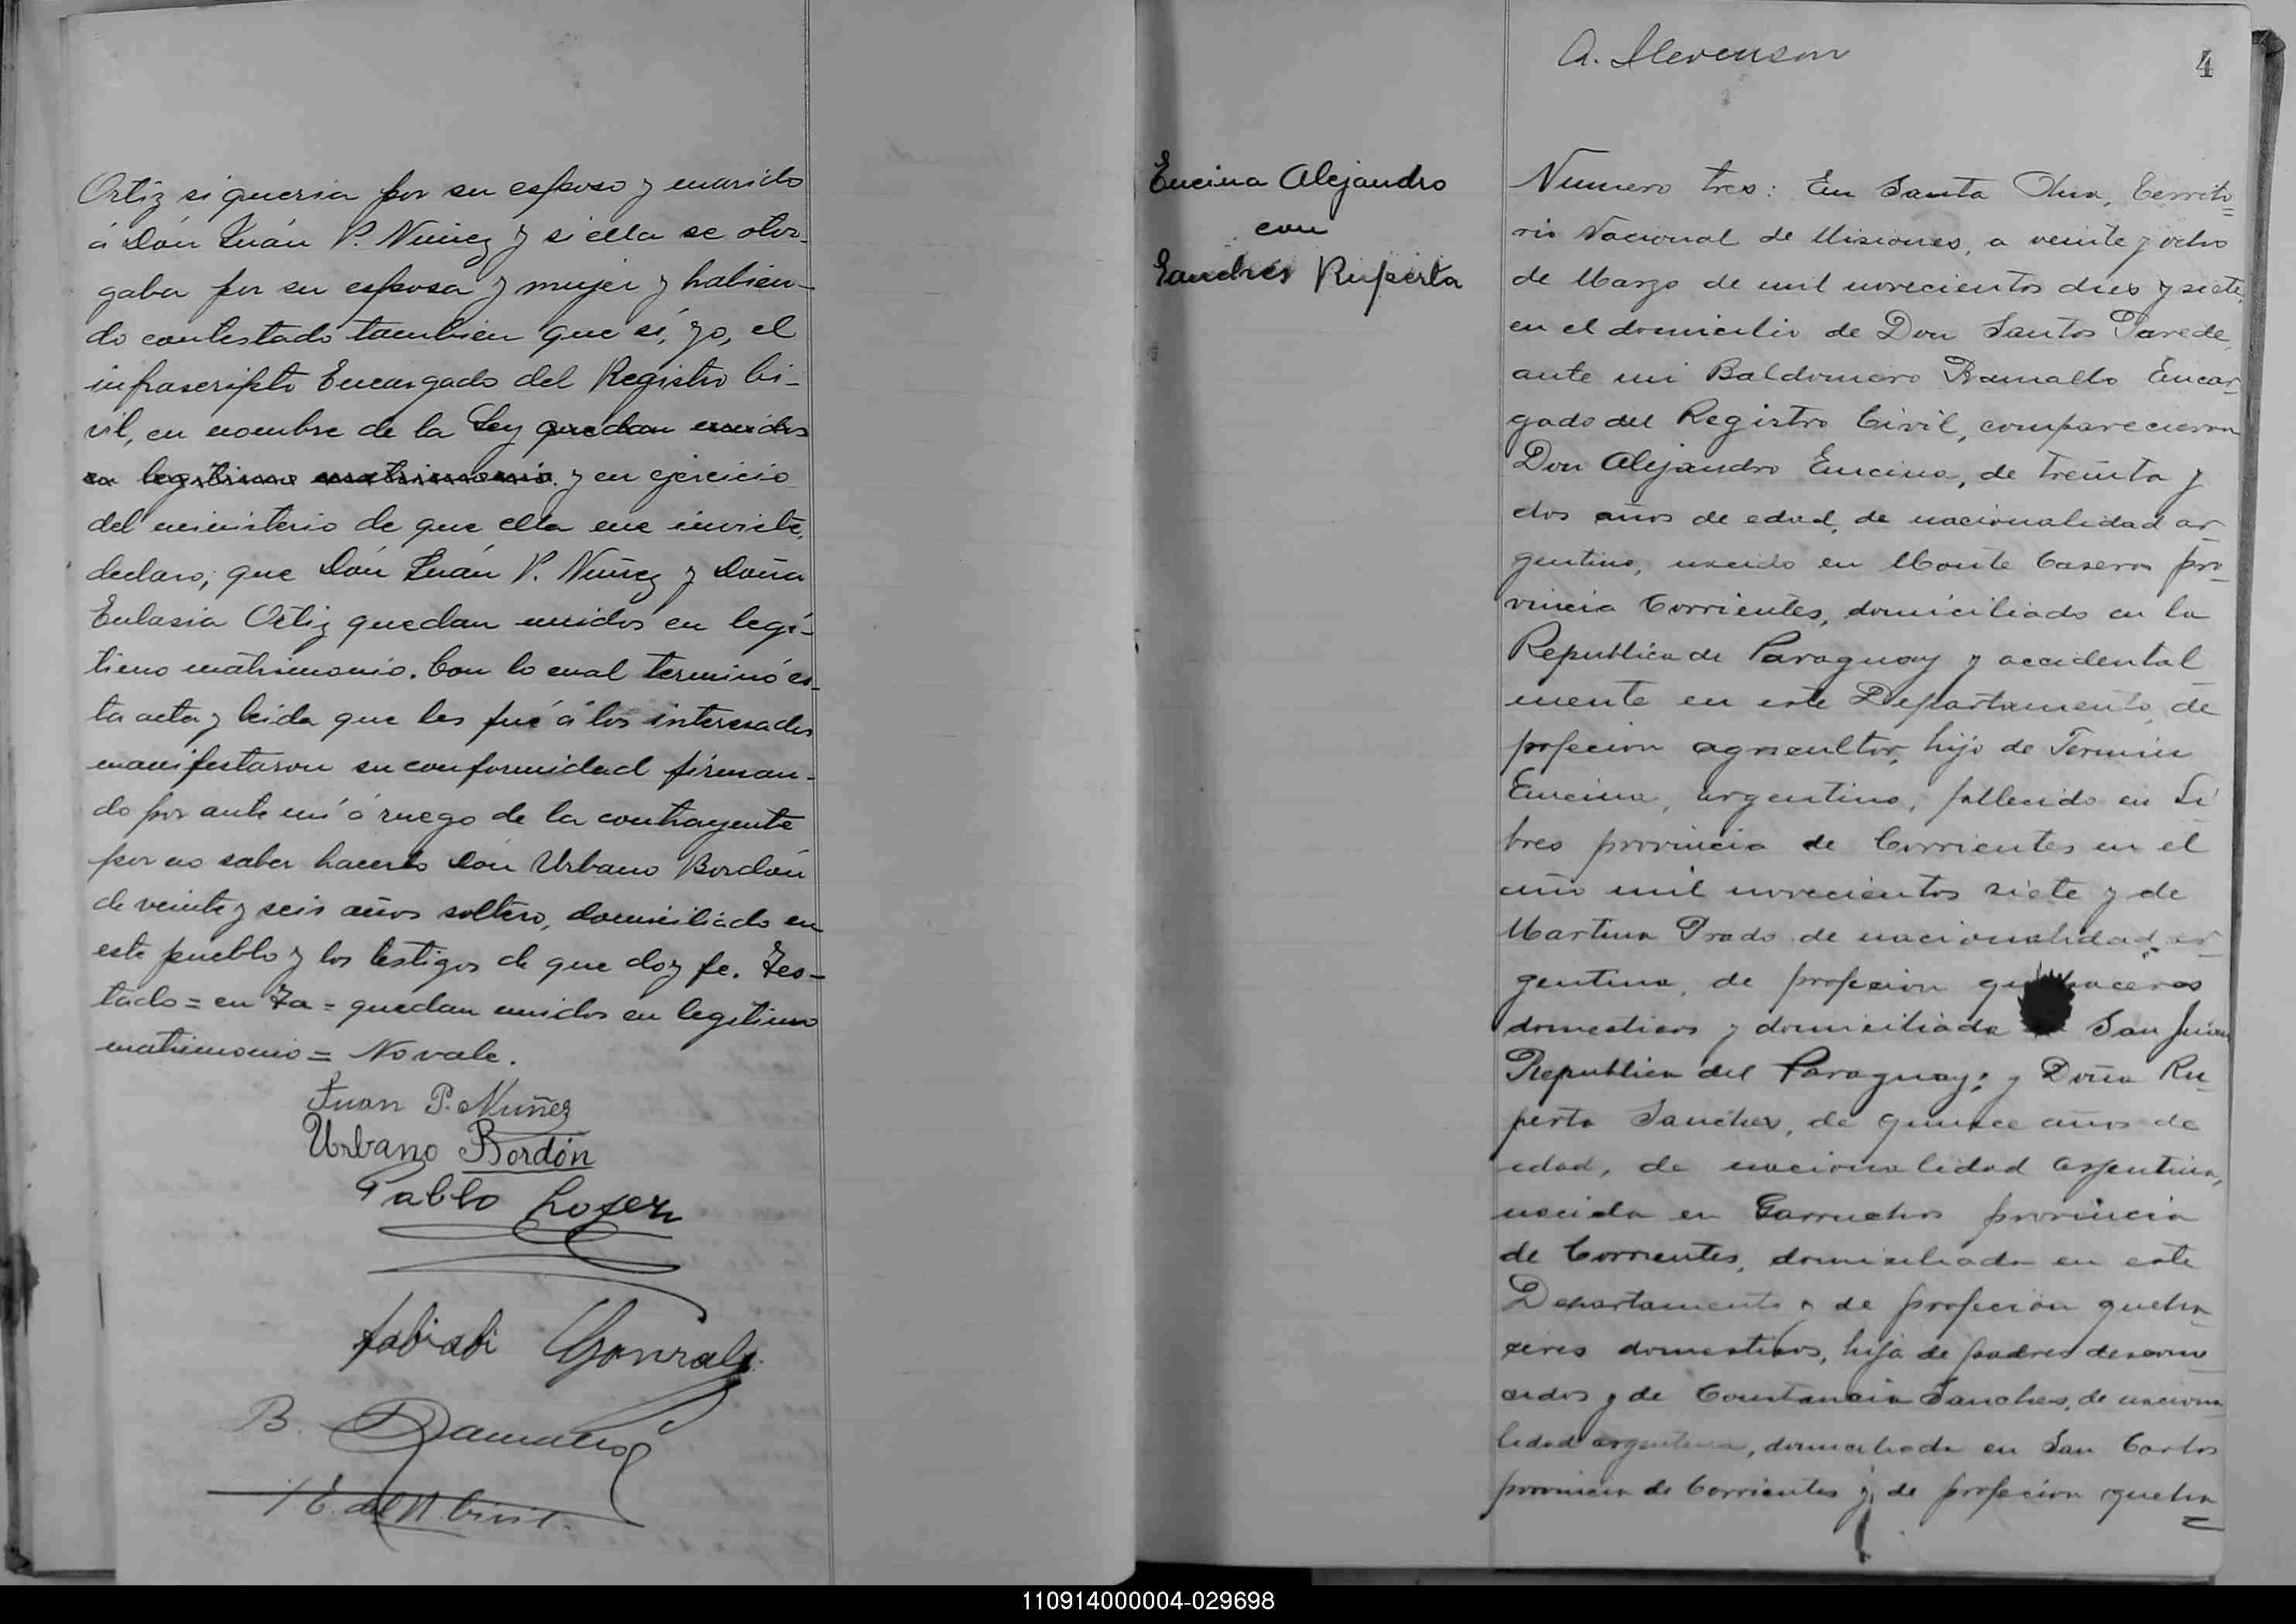 Ortiz si queria por su esposo y marido
á Dón Juán P. Nuñez y si ella se otor-
gaba por su esposa y mujer y habien-
do contestado tambien que sí, yo, el
infrascripto Encargado del Registro Ci-
vil, en nombre de la Ley quedan unidos
en legitimo matrimonio. y en ejercicio
del ministerio de que ella me inviste,
declaro; que Dón Juán P. Nuñez y Doña
Eulasia Ortiz quedan unidos en legí-
timo matrimonio. Con lo cual terminó es-
ta acta y leida que les fué á los interesados
manifestaron su conformidad firman-
do por ante mí á ruego de la contrayente
por no saber hacerlo Dón Urbano Bordón
de veinte y seis años soltero, domiciliado en
este pueblo y los testigos de que doy fe. Tes-
tado = en = quedan unidos en legitimo
matrimonio = No vale.
Juan P. Nuñez
Urbano Bordón
Pablo
Gonzalez
B. Ramallo
E. del R. Civil.
A. Stevenson
4
Encina Alejandro
con
Sanches Ruperta
Numero tres: En Santa Ana, Territo=
rio Nacional de Misiones, a veinte y ocho
de Marzo de mil novecientos dies y siete,
en el domicilio de Don Santos Parede,
ante mi Baldomero Ramallo Encar-
gado del Registro Civil, comparecieron
Don Alejandro Encina, de treinta y
dos años de edad, de nacionalidad ar-
gentino, nacido en Monte Caseros pro-
vincia Corrientes, domiciliado en la
Republica de Paraguay y accidental
mente en este Departamento, de
profecion agricultor, hijo de Termin
Encina, argentino, fallecido en Li
bres provincia de Corrientes en el
año mil novecientos siete y de
Martina Prado de nacionalidad ar-
gentina, de profecion quehaceres
domesticos y domiciliada San Juan
Republica del Paraguay; y Doña Ru-
perta Sanches, de quince años de
edad, de nacionalidad argentina,
nacida en Garruchos provincia
de Corrientes, domiciliada en este
Departamento y de profecion queha-
ceres domesticos, hija de padres descono
cidos y de Constancia Sanches, de naciona
lidad argentina, domiciliada en San Carlos
provincia de Corrientes y de profecion queha
=
110914000004-029698